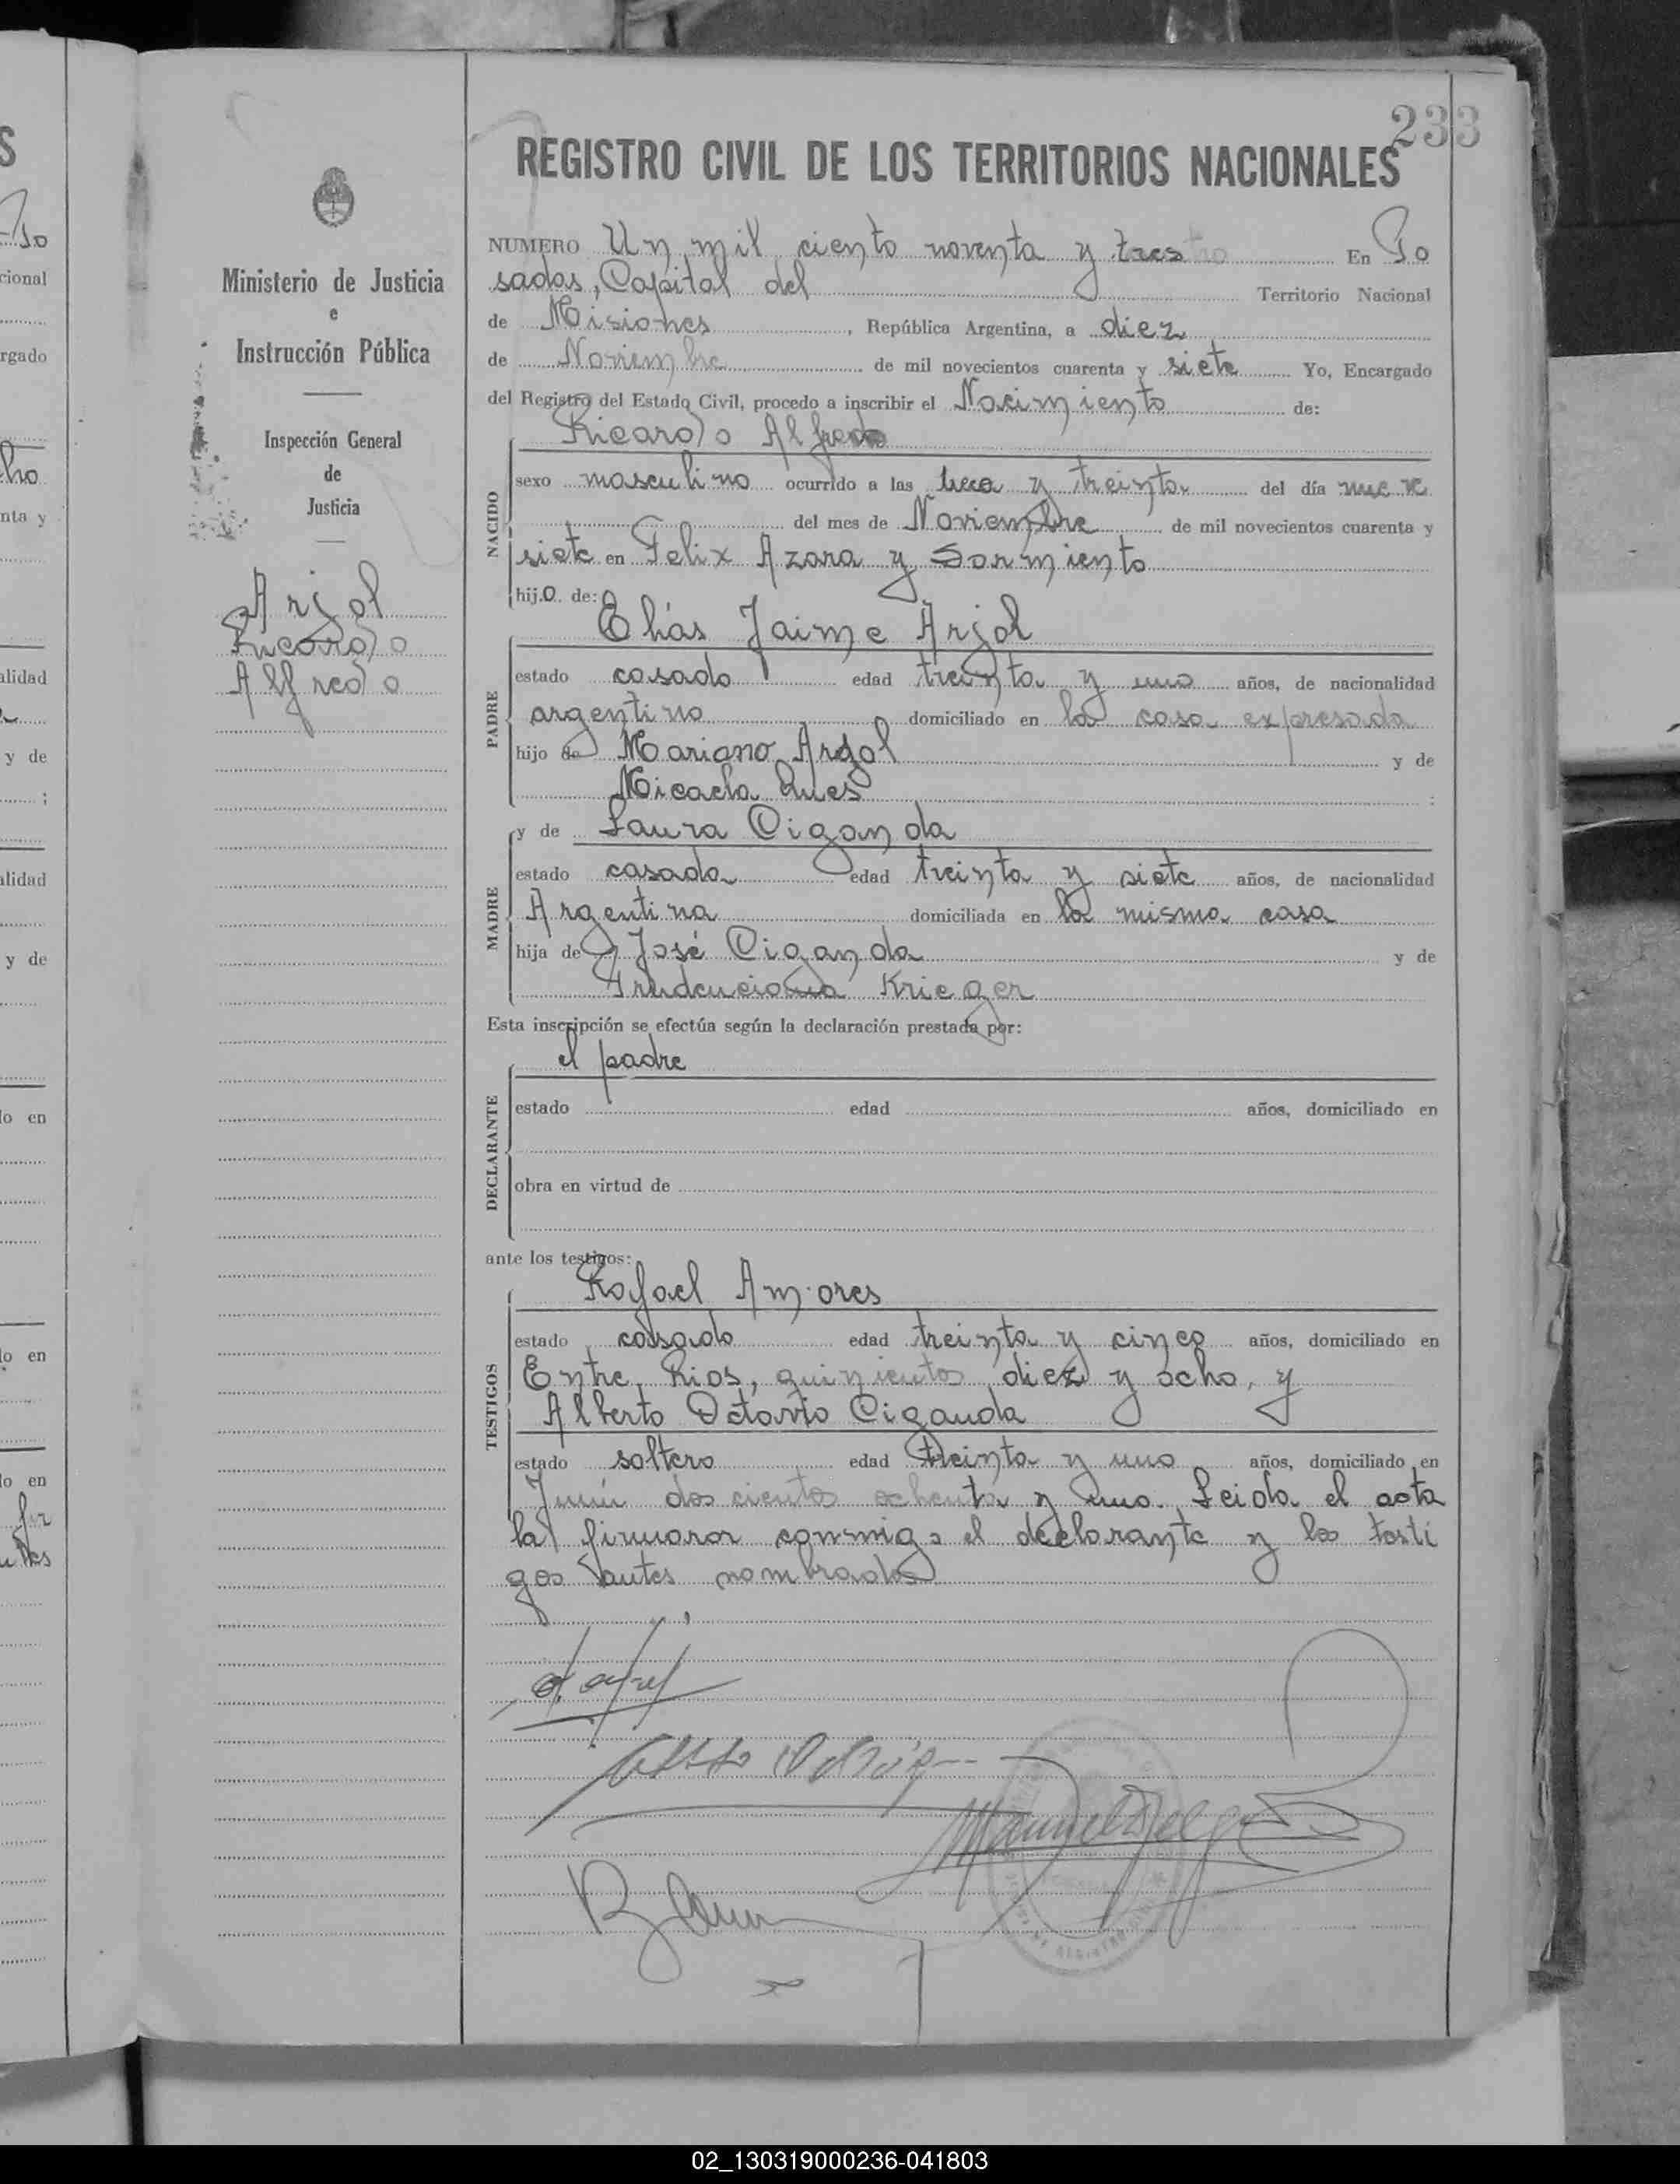 233
REGISTRO CIVIL DE LOS TERRITORIOS NACIONALES
Ministerio de Justicia
e
Instrucción Pública
Inspección General
de
Justicia
Arjol
Ricardo
Alfredo
NUMERO Un mil ciento noventa y tres En Po
sadas, Capital del Territorio Nacional
de Misiones, República Argentina, a diez
de Noviembre de mil novecientos cuarenta y siete Yo, Encargado
del Registro del Estado Civil, procedo a inscribir el Nacimiento de:
Ricardo Alfredo
NACIDO
sexo masculino ocurrido a las trece y treinta del día nueve
del mes de Noviembre de mil novecientos cuarenta y
siete en Felix Azara y Sarmiento
hijo de:
Elías Jaime Arjol
PADRE
estado casado edad treinta y uno años, de nacionalidad
argentino domiciliado en la casa expresada
hijo de Mariano Arjol y de
Micaela
y de Laura Ciganda
MADRE
estado casada edad treinta y siete años, de nacionalidad
Argentina domiciliada en la misma casa
hija de José Ciganda y de
Prudenciana Krieger
Esta inscripción se efectúa según la declaración prestada por:
el padre
DECLARANTE
estado edad años, domiciliado en
obra en virtud de
ante los testigos:
Rafael Amores
TESTIGOS
estado casado edad treinta y cinco años, domiciliado en
Entre Rios, quinientos diez y ocho, y
Alberto Octavio Ciganda
estado soltero edad treinta y uno años, domiciliado en
Junín dos cientos ochenta y uno. Leida el acta
la firmaron conmigo el declarante y los testi
gos antes nombrados
02_130319000236-041803